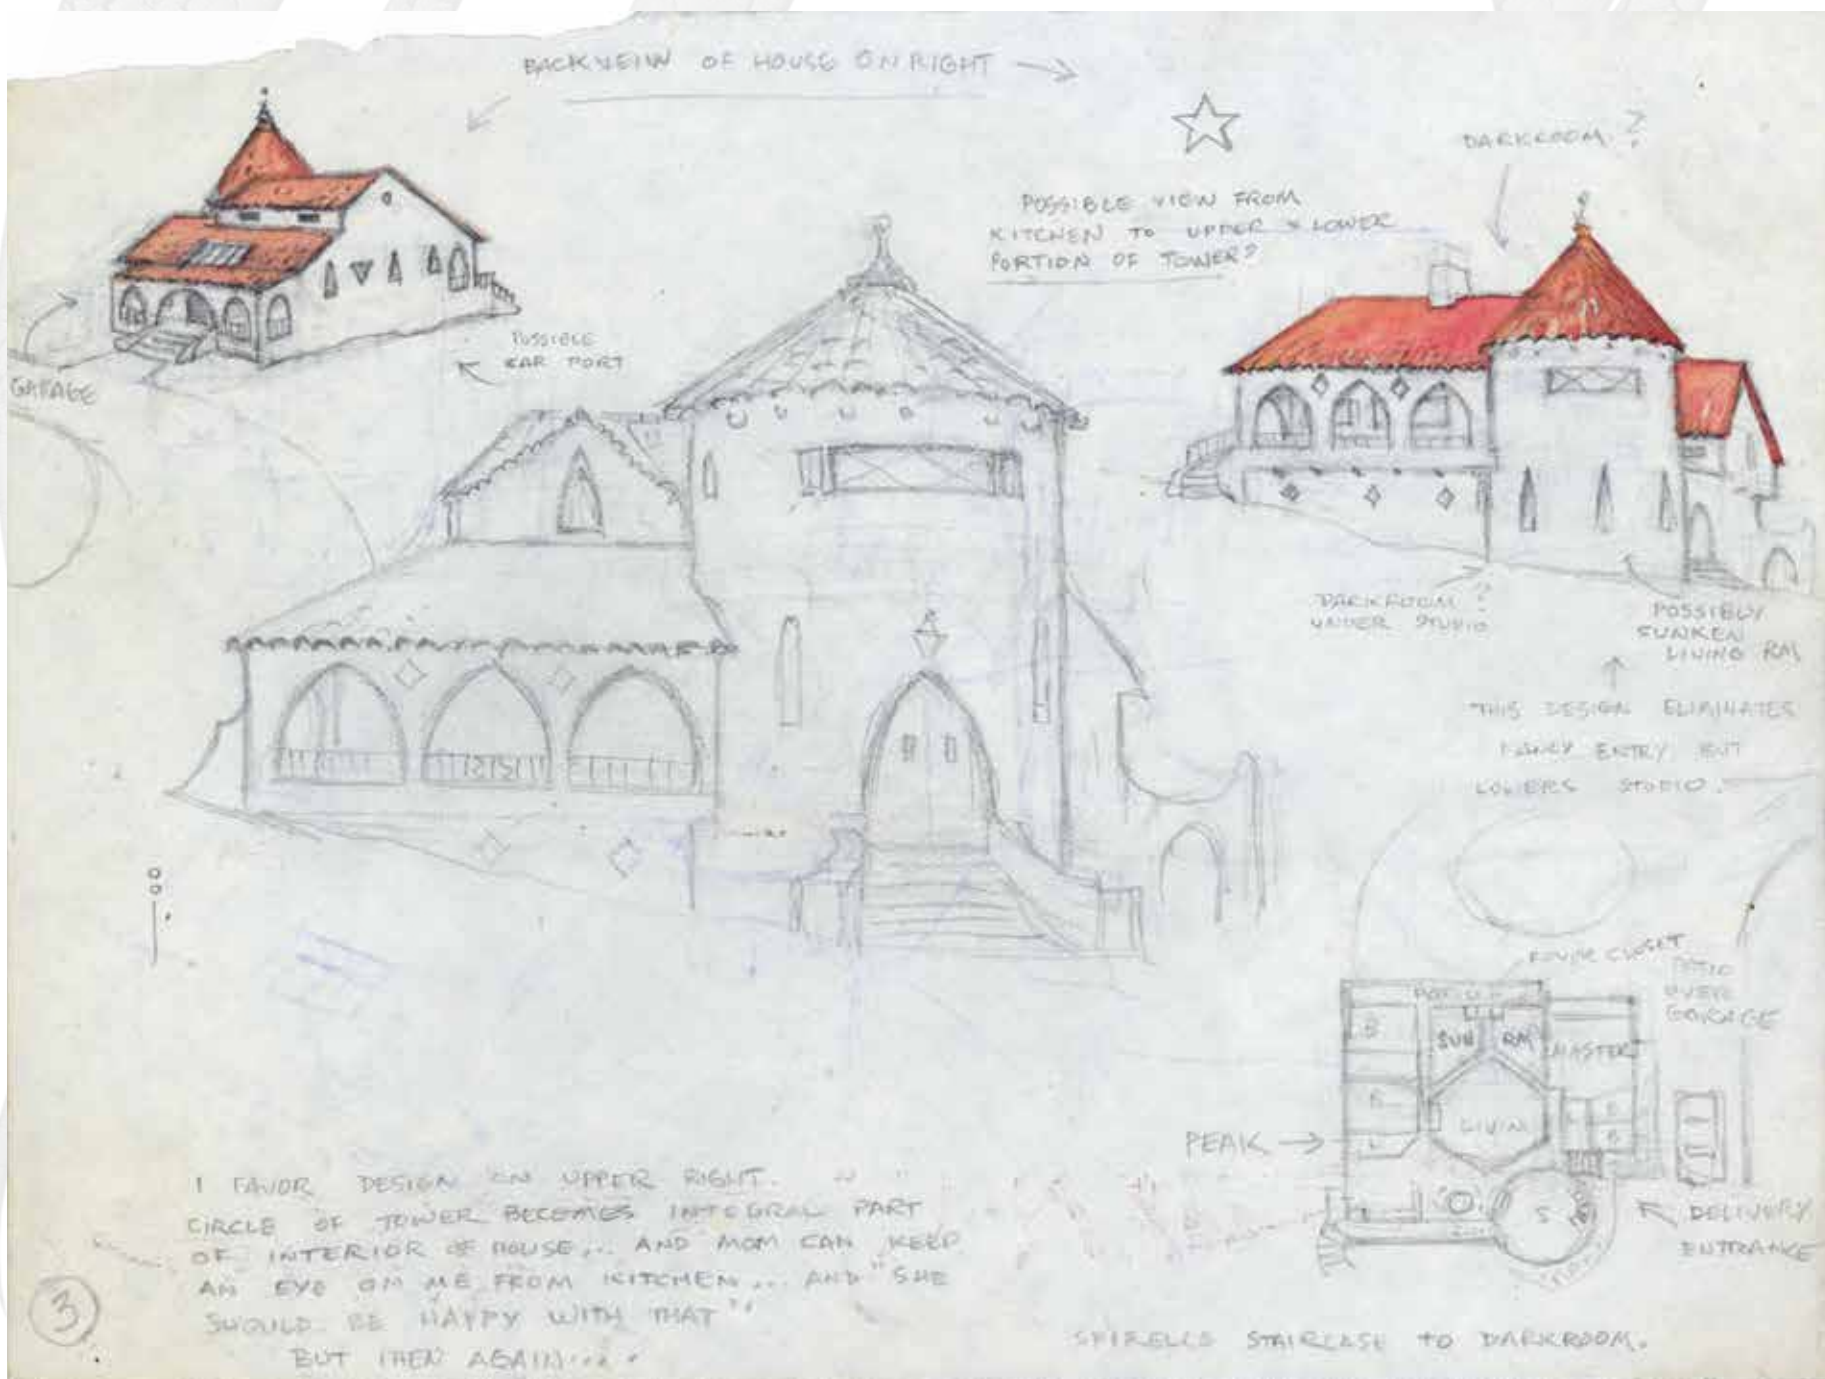 BACK VEIW OF HOUSE ON RIGHT →
DARKROOM?
POSSIBLE VIEW FROM
KITCHEN TO UPPER & LOWER
PORTION OF TOWER?
POSSIBLE
CAR PORT
GARAGE
DARKROOM?
UNDER STUDIO
POSSIBLY
SUNKEN
LIVING RM
THIS DESIGN ELIMINATES
FANCY ENTRY BUT
LOWERS STUDIO.
CLOSET
PATIO
OVER
GARAGE
B
SUN RM
MASTER
LIVIN
PEAK →
S
DELIVERY
ENTRANCE
I FAVOR DESIGN ON UPPER RIGHT.
CIRCLE OF TOWER BECOMES INTEGRAL PART
OF INTERIOR OF HOUSE... AND MOM CAN KEEP
AN EYE ON ME FROM KITCHEN... AND "SHE
SHOULD BE HAPPY WITH THAT"
BUT THEN AGAIN....
3
SPIRELLE STAIRCASE TO DARKROOM.